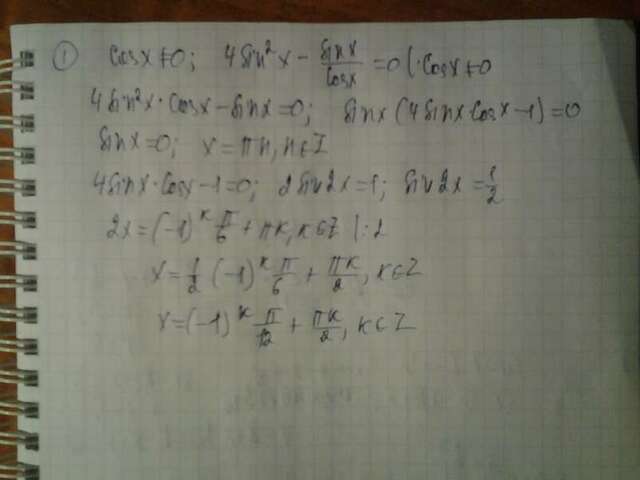 ① cosx≠0; 4sin²x - sinx/cosx = 0 | · cosx≠0
4sin²x·cosx - sinx = 0; sinx(4sinx·cosx-1)=0
sinx=0; x=πn, n∈Z
4sinx·cosx-1=0; 2sin2x=1; sin2x=1/2
2x=(-1)ᵏ π/6 + πk, k∈Z |:2
x=1/2 (-1)ᵏ π/6 + πk/2, k∈Z
x=(-1)ᵏ π/12 + πk/2, k∈Z